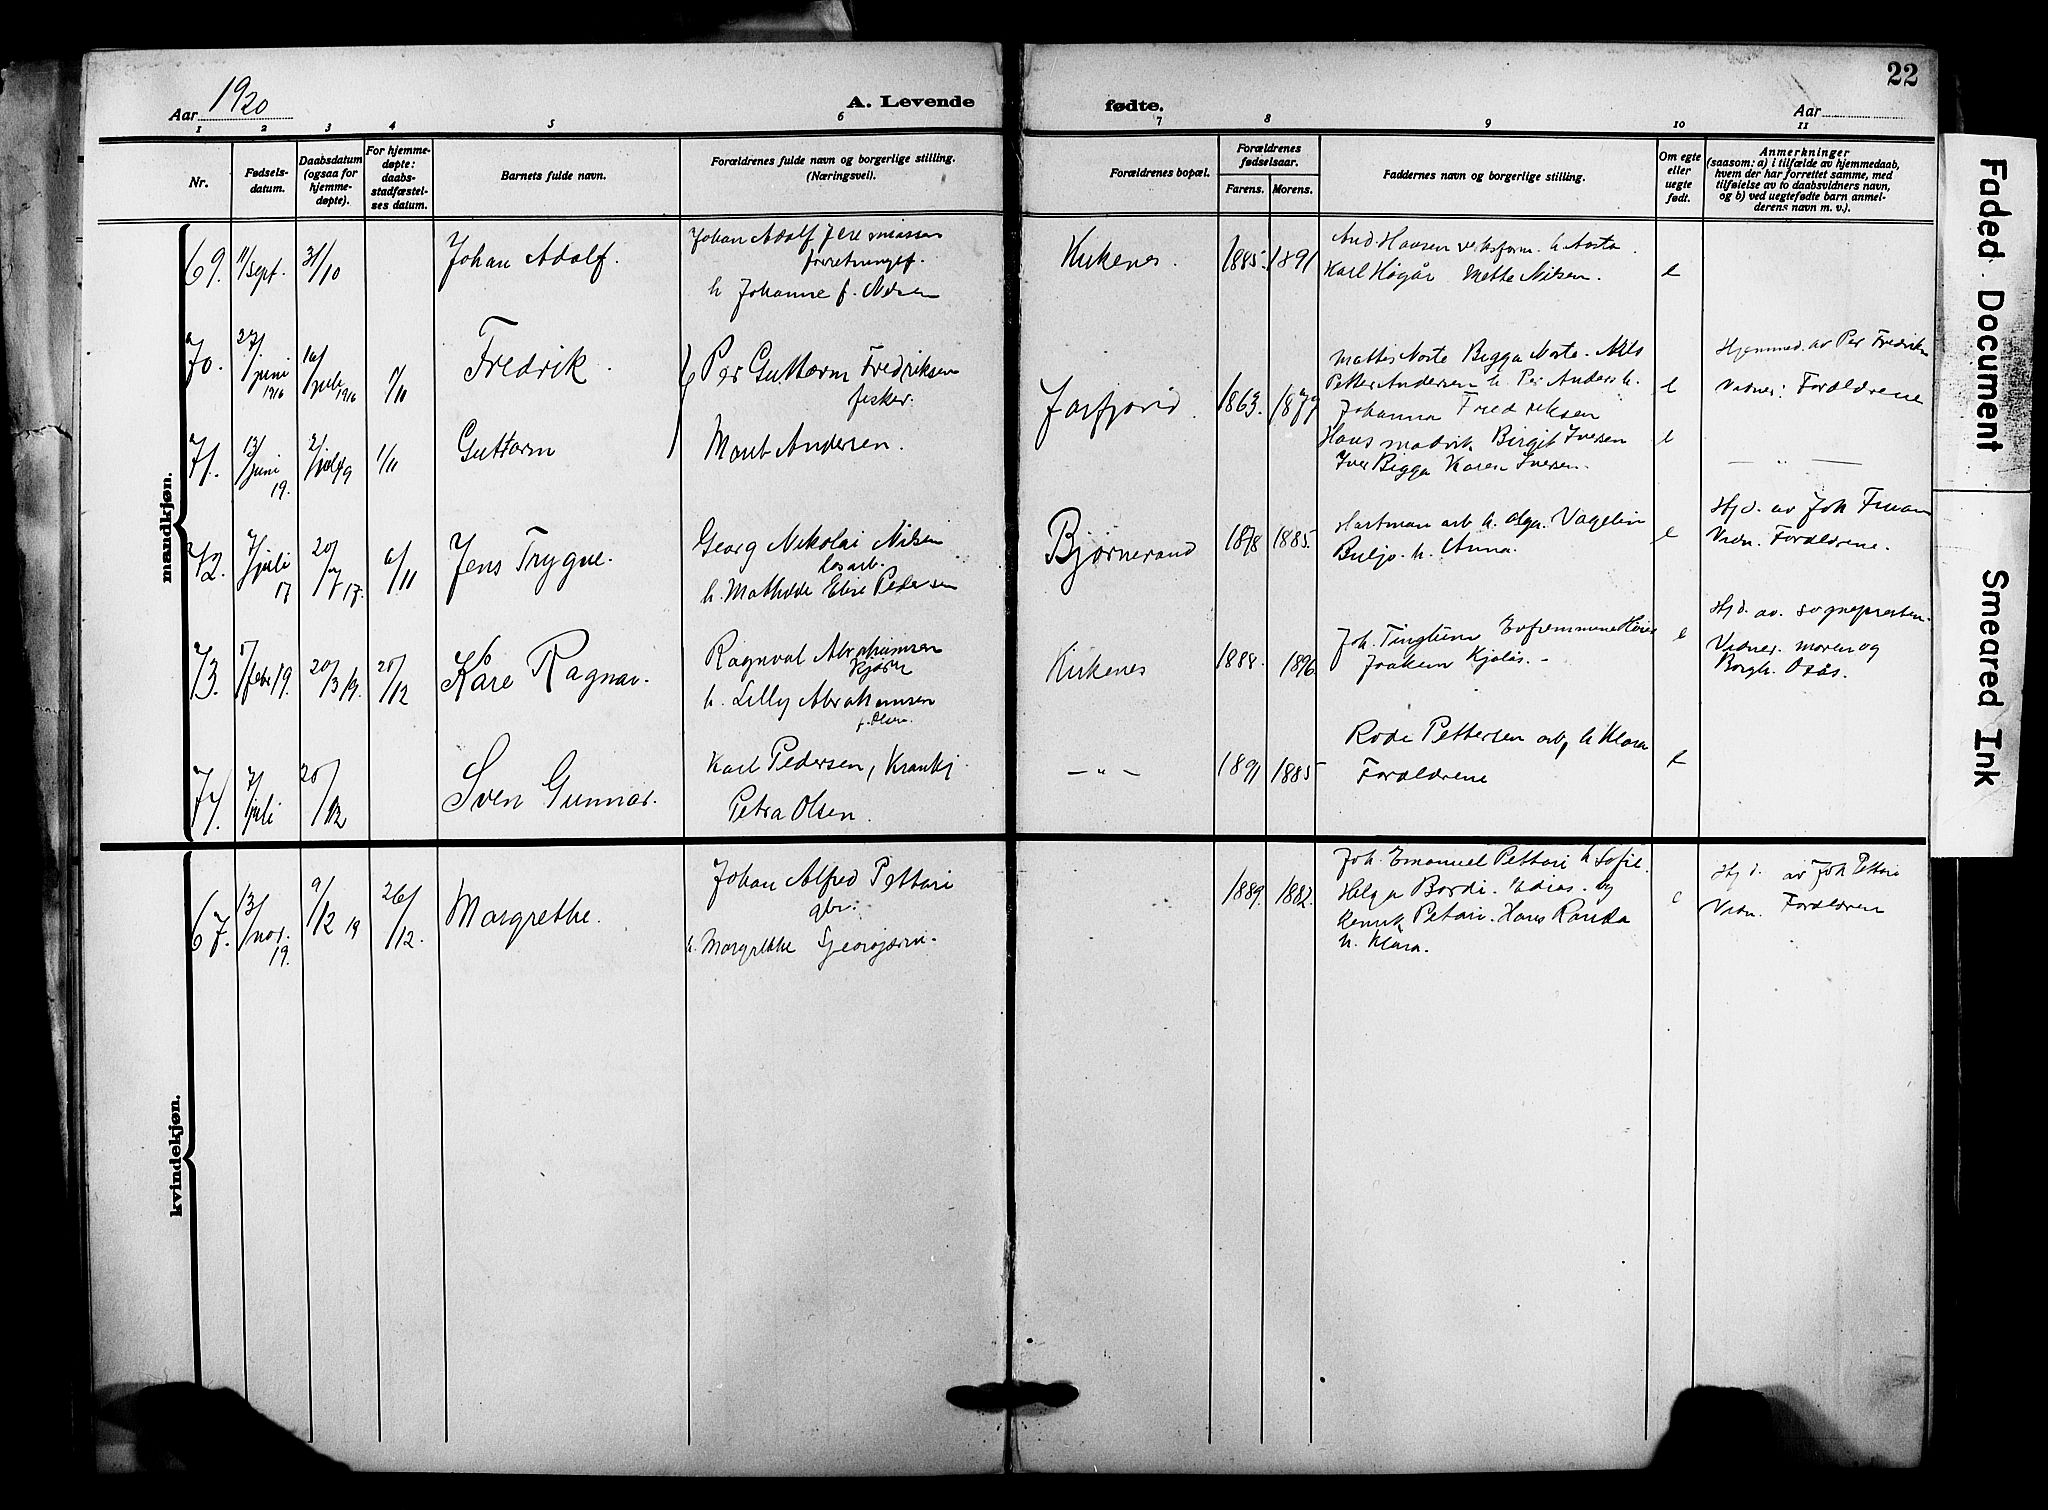 22
Aar 1920
A. Levende
fødte.
Aar
1 2 3 4 5 6 7 8 9 10 11
Nr.
Fødsels-
datum.
Daabsdatum
(ogsaa for
hjemme-
døpte).
For hjemme-
døpte:
daabs-
stadfæstel-
ses datum.
Barnets fulde navn.
Forældrenes fulde navn og borgerlige stilling.
(Næringsvei).
Forældrenes bopæl.
Forældrenes
fødselsaar.
Farens. Morens.
Faddernes navn og borgerlige stilling.
Om egte
eller
uegte
født.
Anmerkninger
(saasom: a) i tilfælde av hjemmedaab,
hvem der har forrettet samme, med
tilføielse av to daabsvidners navn,
og b) ved uegtefødte barn anmel-
derens navn m. v.).
mandkjøn.
69. 11/sept. 31/10
Johan Adolf.
Johan Adolf
h Johanne f. Nilsen
Kirkenes. 1885. 1891
And Hansen
Karl Høgår Mette Nilsen. e
70. 27/juni 1916
Fredrik.
Per Guttorm Fredriksen
fisker.
Jarfjord. 1863. 1877
Mattis Norte Bigga Norte. Nils
Petter Andersen h. Per Anders h.
Johanna Fredriksen e
Hjemmed. av Per Fredriksen
Vidner: Forældrene
71. 13/juni 19. 1/11
Guttorm
Marit Andersen.
Hans Madvik Birgit Iversen
Iver Bigga Karen Iversen. e
— „ —
72. 7/juli 17 20/7 17. 6/11
Jens Trygve.
Georg Nikolai Nilsen
løsarb.
h. Mathilde Elise Pedersen
Bjørnerand 1878 1885.
Hartman arb h. Olga. Vagelin
Buljo. h. Anna. e
Hj d. av Joh
Vidn. Forældrene.
73. /febr 19. 20/3 19. 20/12
Kåre Ragnar.
Ragnval Abrahamsen
h. Lilly Abrahamsen
f. Olsen.
Kirkenes 1888. 1896.
Joh. Tinglum
Joakim Kjelås. e
Hj d. av. sognepresten
Vidner. moren og
Borgh. Osås.
74. 2/juli 20/12
Sven Gunnar.
Karl Pedersen,
Petra Olsen.
— „ — 1891 1885
Rode Pettersen arb, h Klara
Forældrene e
kvindekjøn.
67. 13/nov. 19. 9/12 19 26/12.
Margrethe.
Johan Alfred Pettari
gbr:
h. Margrethe
1889. 1882.
Joh. Emanuel Pettari h Sofie.
Helga Bordi. Edias. og
Henrik Petari. Hans Randa
h. Klara. e
Hj d. av Joh Pettari
Vidn. Forældrene
Faded Document
Smeared Ink